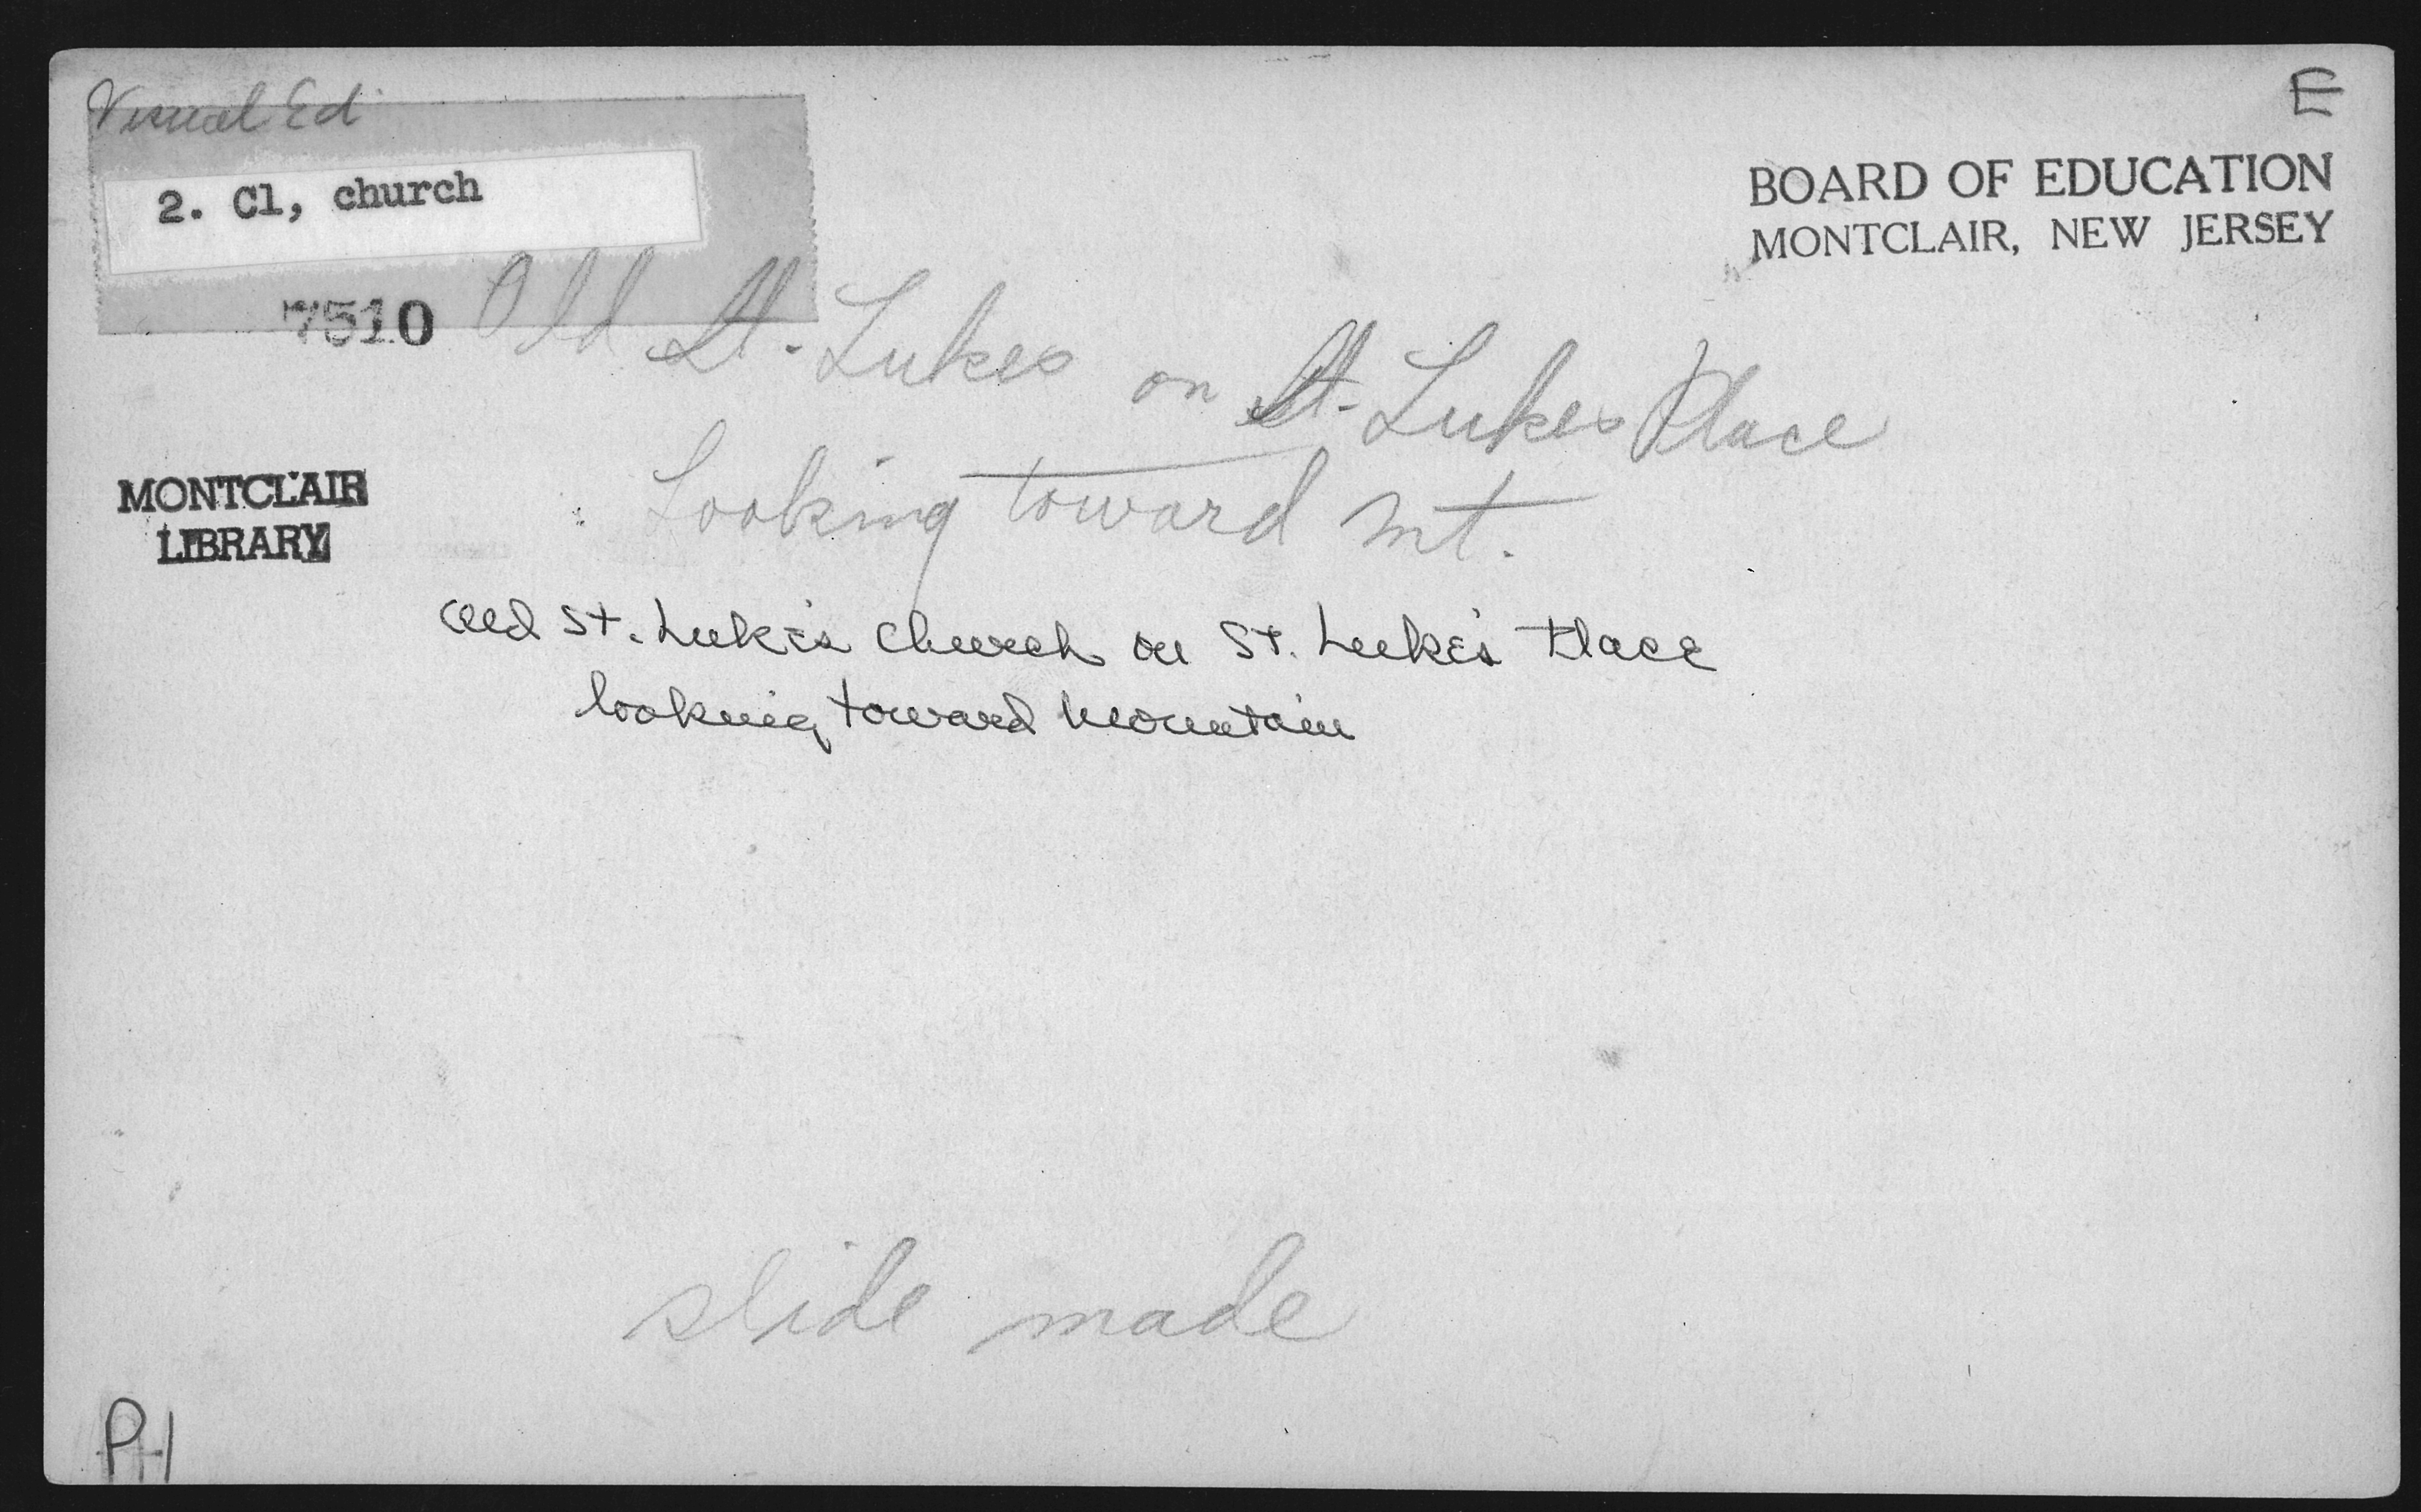 Visual Ed
E
2. Cl, church
BOARD OF EDUCATION
MONTCLAIR, NEW JERSEY
7510
Old St. Lukes on St. Lukes Place
Looking toward Mt.
MONTCLAIR
LIBRARY
Old St. Luke's Church on St. Luke's Place
looking toward Mountain
slide made
PH